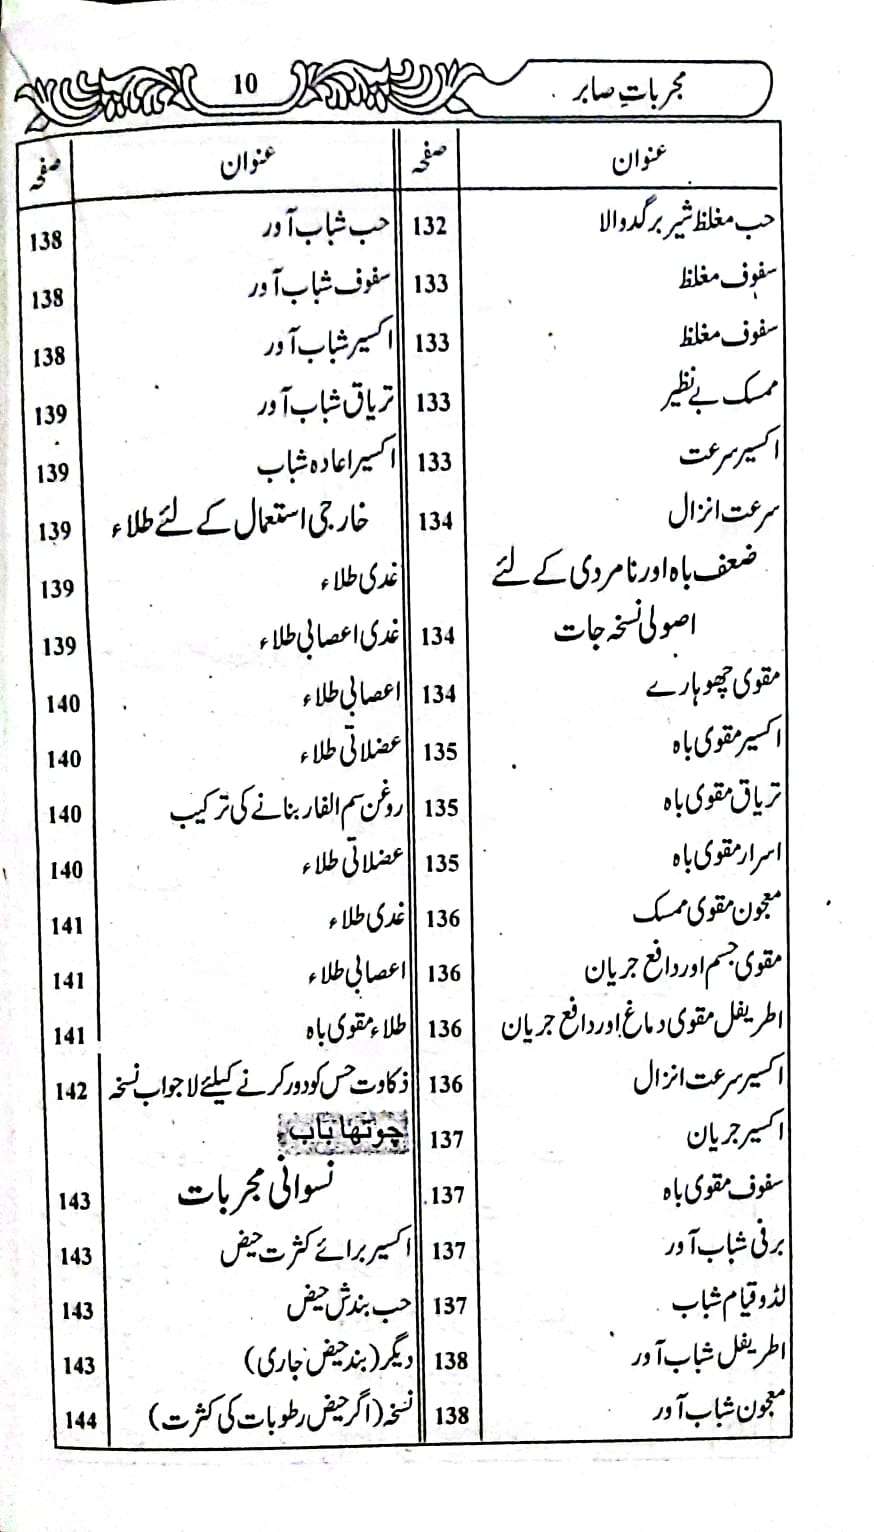 مجرباتِ صابر
10
عنوان صفحہ
حب مغلظ شیر برگد والا 132
سفوف مغلظ 133
سفوف مغلظ 133
ممسک بے نظیر 133
اکسیر سرعت 133
سرعت انزال 134
ضعف باہ اور نامردی کے لئے
اصولی نسخہ جات 134
مقوی چھوہارے 134
اکسیر مقوی باہ 135
تریاق مقوی باہ 135
اسرار مقوی باہ 135
معجون مقوی ممسک 136
مقوی جسم اور دافع جریان 136
اطریفل مقوی دماغ اور دافع جریان 136
اکسیر سرعت انزال 136
اکسیر جریان 137
سفوف مقوی باہ 137
برفی شباب آور 137
لڈو قیام شباب 137
اطریفل شباب آور 138
معجون شباب آور 138
عنوان صفحہ
حب شباب آور 138
سفوف شباب آور 138
اکسیر شباب آور 138
تریاق شباب آور 139
اکسیر اعادہ شباب 139
خارجی استعمال کے لئے طلاء 139
غدی طلاء 139
غدی اعصابی طلاء 139
اعصابی طلاء 140
عضلاتی طلاء 140
روغن سم الفار بنانے کی ترکیب 140
عضلاتی طلاء 140
غدی طلاء 141
اعصابی طلاء 141
طلاء مقوی باہ 141
ذکاوت حس کو دور کرنے کیلئے لاجواب نسخہ 142
چوتھا باب
نسوانی مجربات 143
اکسیر برائے کثرت حیض 143
حب بندش حیض 143
دیگر (بند حیض جاری) 143
نسخہ (اگر حیض رطوبات کی کثرت) 144